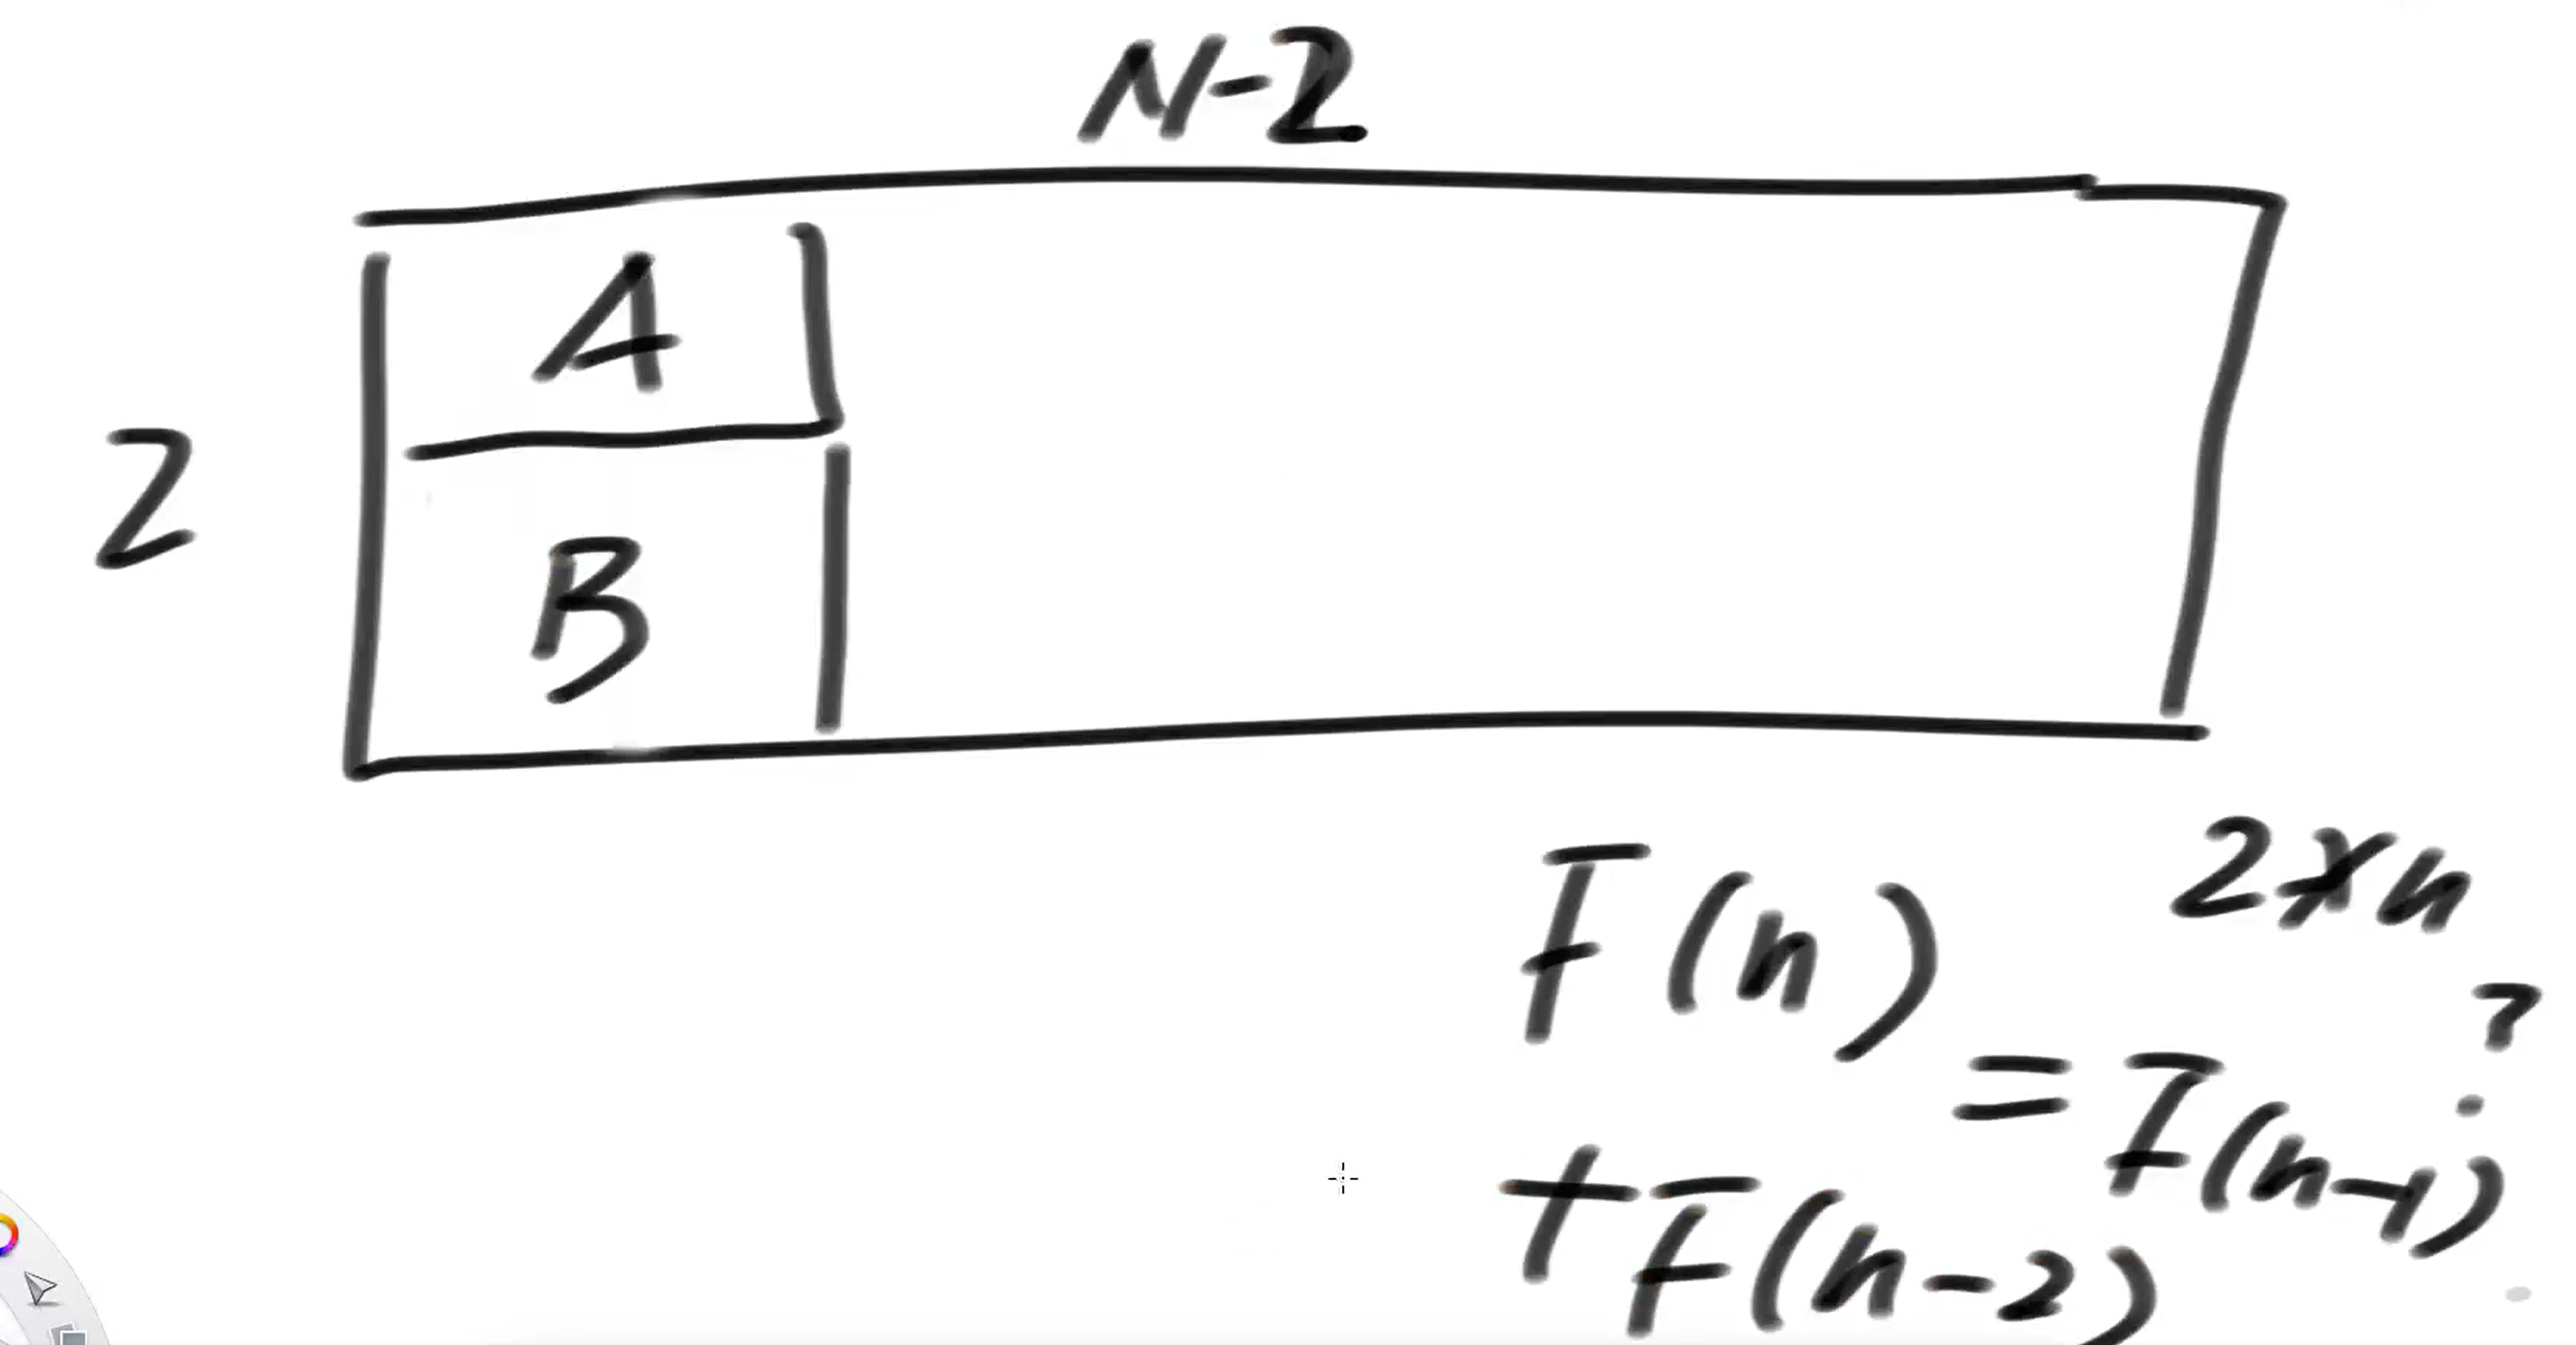 N-2
A
2
B
2×n
F(n)
?
= F(n-1)
+F(n-2)